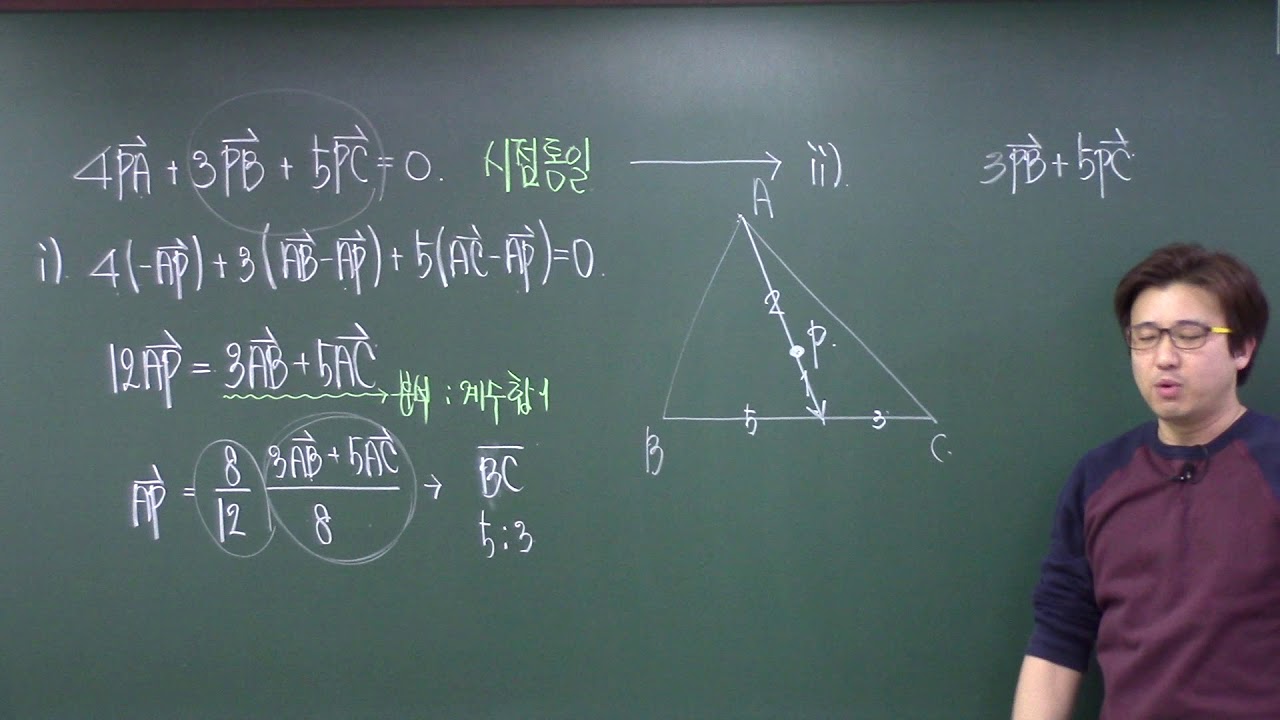 4PA⃗ + 3PB⃗ + 5PC⃗ = 0. 시점통일 → ii). 3PB⃗ + 5PC⃗
i). 4(-AP⃗) + 3(AB⃗ - AP⃗) + 5(AC⃗ - AP⃗) = 0.
12AP⃗ = 3AB⃗ + 5AC⃗ → : 계수합 1
AP⃗ = 8/12 (3AB⃗ + 5AC⃗)/8 → B̅C̅
5:3
A
2
P.
1
5 3
B C.